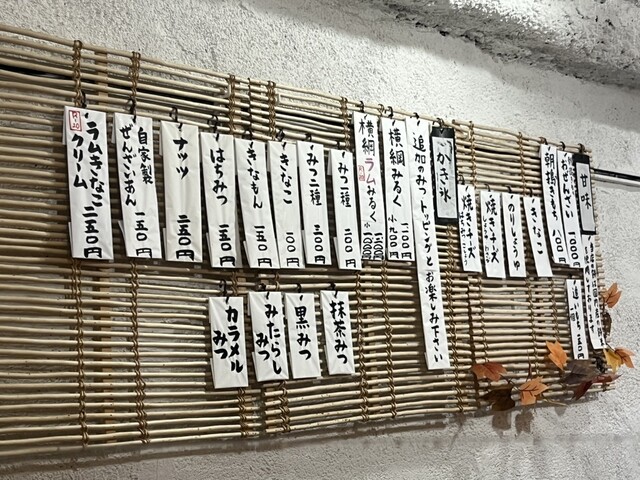 甘味
おぜんざい 一〇〇〇円
朝搗きもち 八〇〇円
追いもち 一五〇円
きなこ
のりしょうゆ
焼きチーズ
焼きチーズ
かき氷
追加のみつ トッピングと お楽しみ下さい
横綱みるく
横綱ラムみるく
みつ一種 二〇〇円
みつ二種 三〇〇円
きなこ 一〇〇円
きなもん 一五〇円
はちみつ 一五〇円
ナッツ 二五〇円
自家製
ぜんざいあん 一五〇円
ラムきなこ
クリーム 二五〇円
抹茶みつ
黒みつ
みたらし
みつ
カラメル
みつ